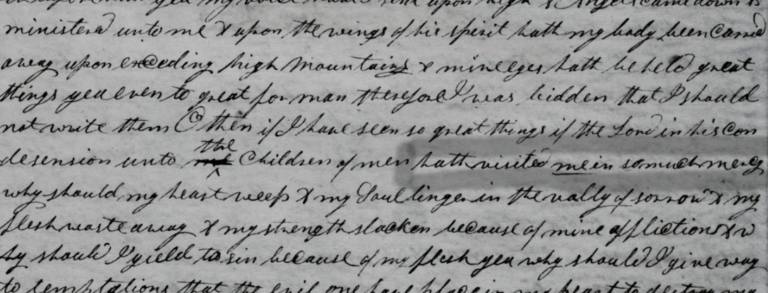 upon high & Angels came down &
ministered unto me & upon the wings of his spirit hath my body been carried
away upon exceeding high mountains & mine eyes hath beheld great
things yea even to great for man therefore I was bidden that I should
not write them O then if I have seen so great things if the Lord in his con
desension unto me the Children of men hath visited me in so much mercy
why should my heart weep & my Soul linger in the vally of sorrow & my
flesh waste away & my strength slacken because of mine afflictions & w
hy should I yield to sin because of my flesh yea why should I give way
to temptations that the evil one have place in my heart to destroy my